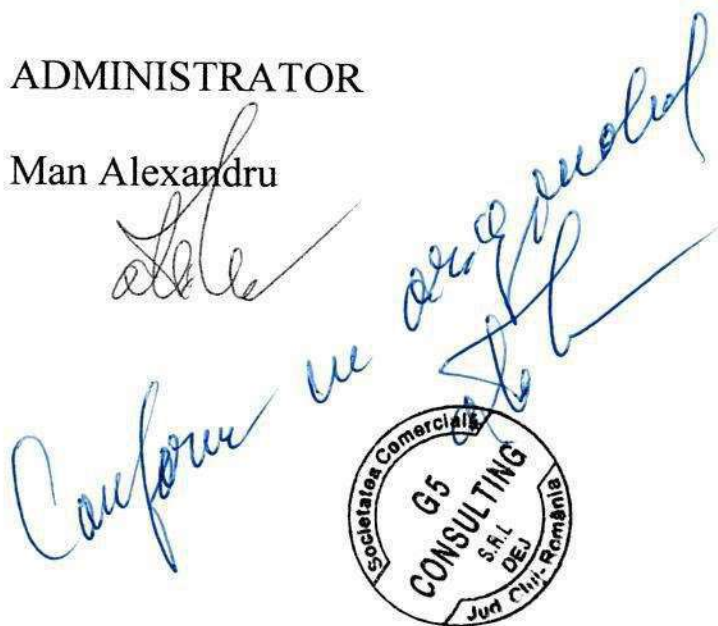 ADMINISTRATOR
Man Alexandru
Conform cu originalul
Societatea Comercială
G5
CONSULTING
S.R.L
DEJ
Jud Cluj-România